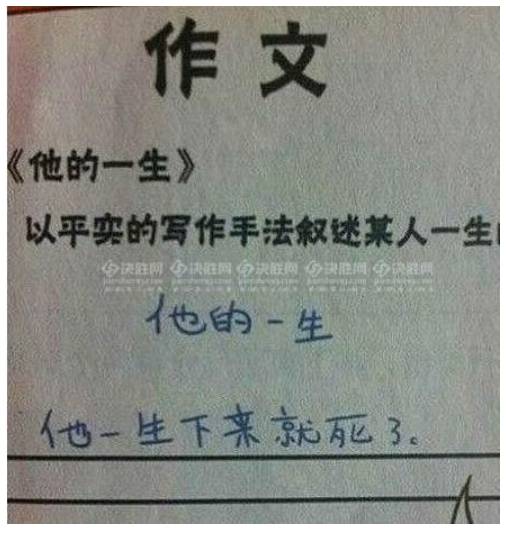 作文
《他的一生》
以平实的写作手法叙述某人一生
决胜网 决胜网 决胜网 决胜网 决胜网
他的一生
他一生下来就死了。